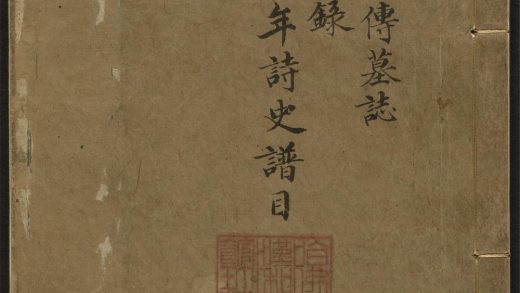 傳墓誌
錄
年詩史譜目